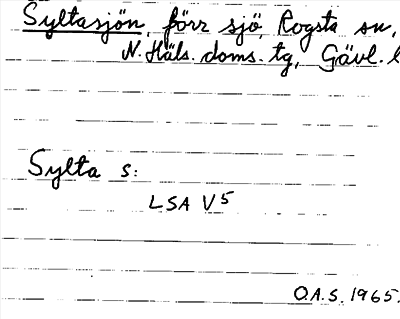 Syltasjön, förr sjö, Rogsta sn,
N. Häls. doms. tg, Gävl. l
Sylta s:
LSA V5
O.A.S. 1965.